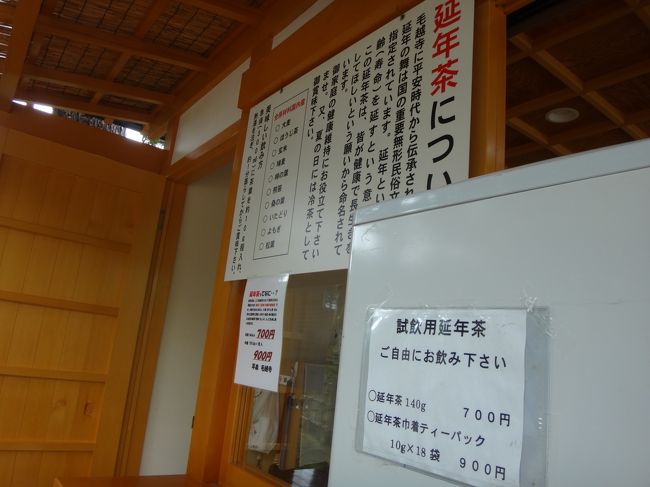 延年茶につい
毛越寺に平安時代から伝承され
延年の舞は国の重要無形民俗文
指定されています。延年とい
齢（寿命）を延すという意
この延年茶は、皆が健康で長生きを
してほしいという願いから命名されて
います。
御家庭の健康維持にお役立て下さい
ませ。又、夏の日には冷茶として
御賞味下さい。
全原材料国内産
○大麦
○はうじ茶
○玄米
○鳩麦
○柿の葉
○熊笹
○桑の葉
○いたどり
○よもぎ
○松葉
美味しい飲み方
700円
900円
平泉 毛越寺
試飲用延年茶
ご自由にお飲み下さい
○延年茶 140g 700円
○延年茶巾着ティーパック
10g×18 袋 900円